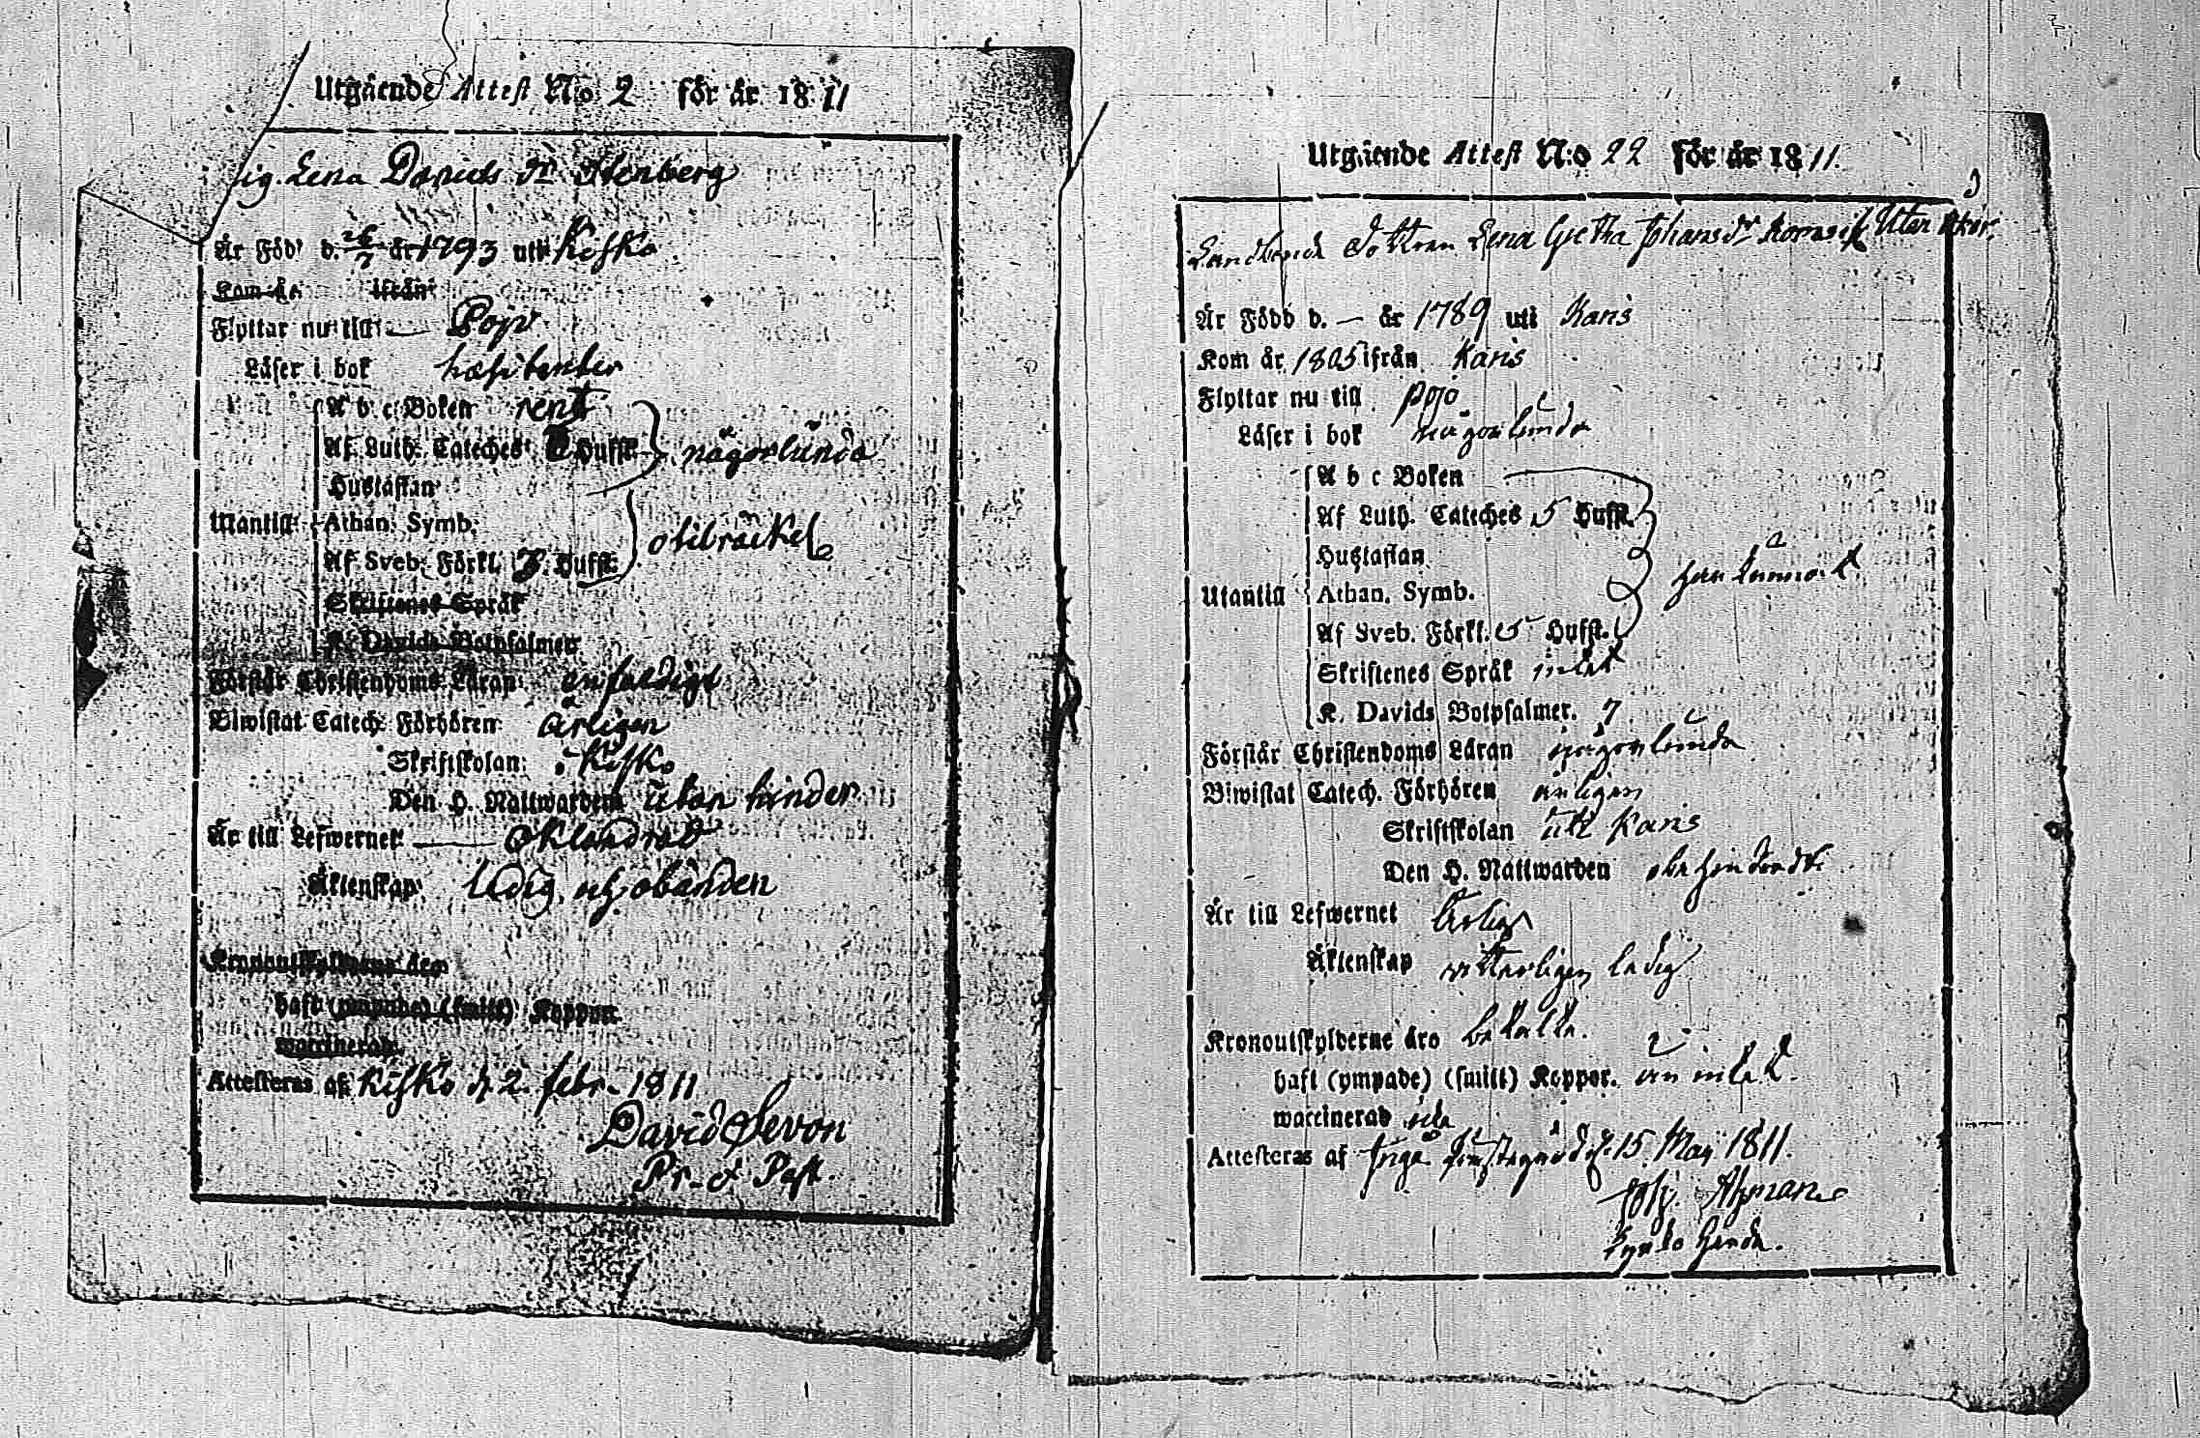 Utgående Attest N:o 2 för år 1811
Pig. Lena Davids dr Stenberg
Är Född d. 26/7 år 1793 uti Kisko
Kom år ifrån
Flyttar nu till Pojo
Läser i bok hæsitenter
A b c Boken rent
Af Luth. Cateches 5 Hufst. någorlunda
Hustaflan
Utantill Athan. Symb.
Af Sveb. Förkl. 3. Hufst. otilräckel.
Skriftenes Språk
K. Davids Botpsalmer
Förstår Christendoms Läran enfaldigt
Biwistat Catech. Förhören årligen
Skriftskolan i Kisko
Den H. Nattwarden utan hinder
Är till Lefwernet oklandrad
Äktenskap ledig och obunden
Kronoutskylderne äro
haft (ympade) (smitt) Koppor
waccinerad
Attesteras af Kisko d. 2 febr. 1811
David Sevon
Pr. o Past.
Utgående Attest N:o 22 för år 1811.
Landbonde dottren Lena Gretha Johans dr
Är Född d. — år 1789 uti Karis
Kom år 1805 ifrån Karis
Flyttar nu till Pojo
Läser i bok någorlunda
A b c Boken
Af Luth. Cateches 5 Hufst.
Hustaflan
Utantill Athan. Symb.
Af Sveb. Förkl. 5 Hufst.
Skriftenes Språk intet
K. Davids Botpsalmer. 7
Förstår Christendoms Läran någorlunda
Biwistat Catech. Förhören årligen
Skriftskolan uti Karis
Den H. Nattwarden obehindradt
Är till Lefwernet ärlig
Äktenskap witterligen ledig
Kronoutskylderne äro betalte.
haft (ympade) (smitt) Koppor.
waccinerad icke
Attesteras af Ingå 15 Maij 1811.